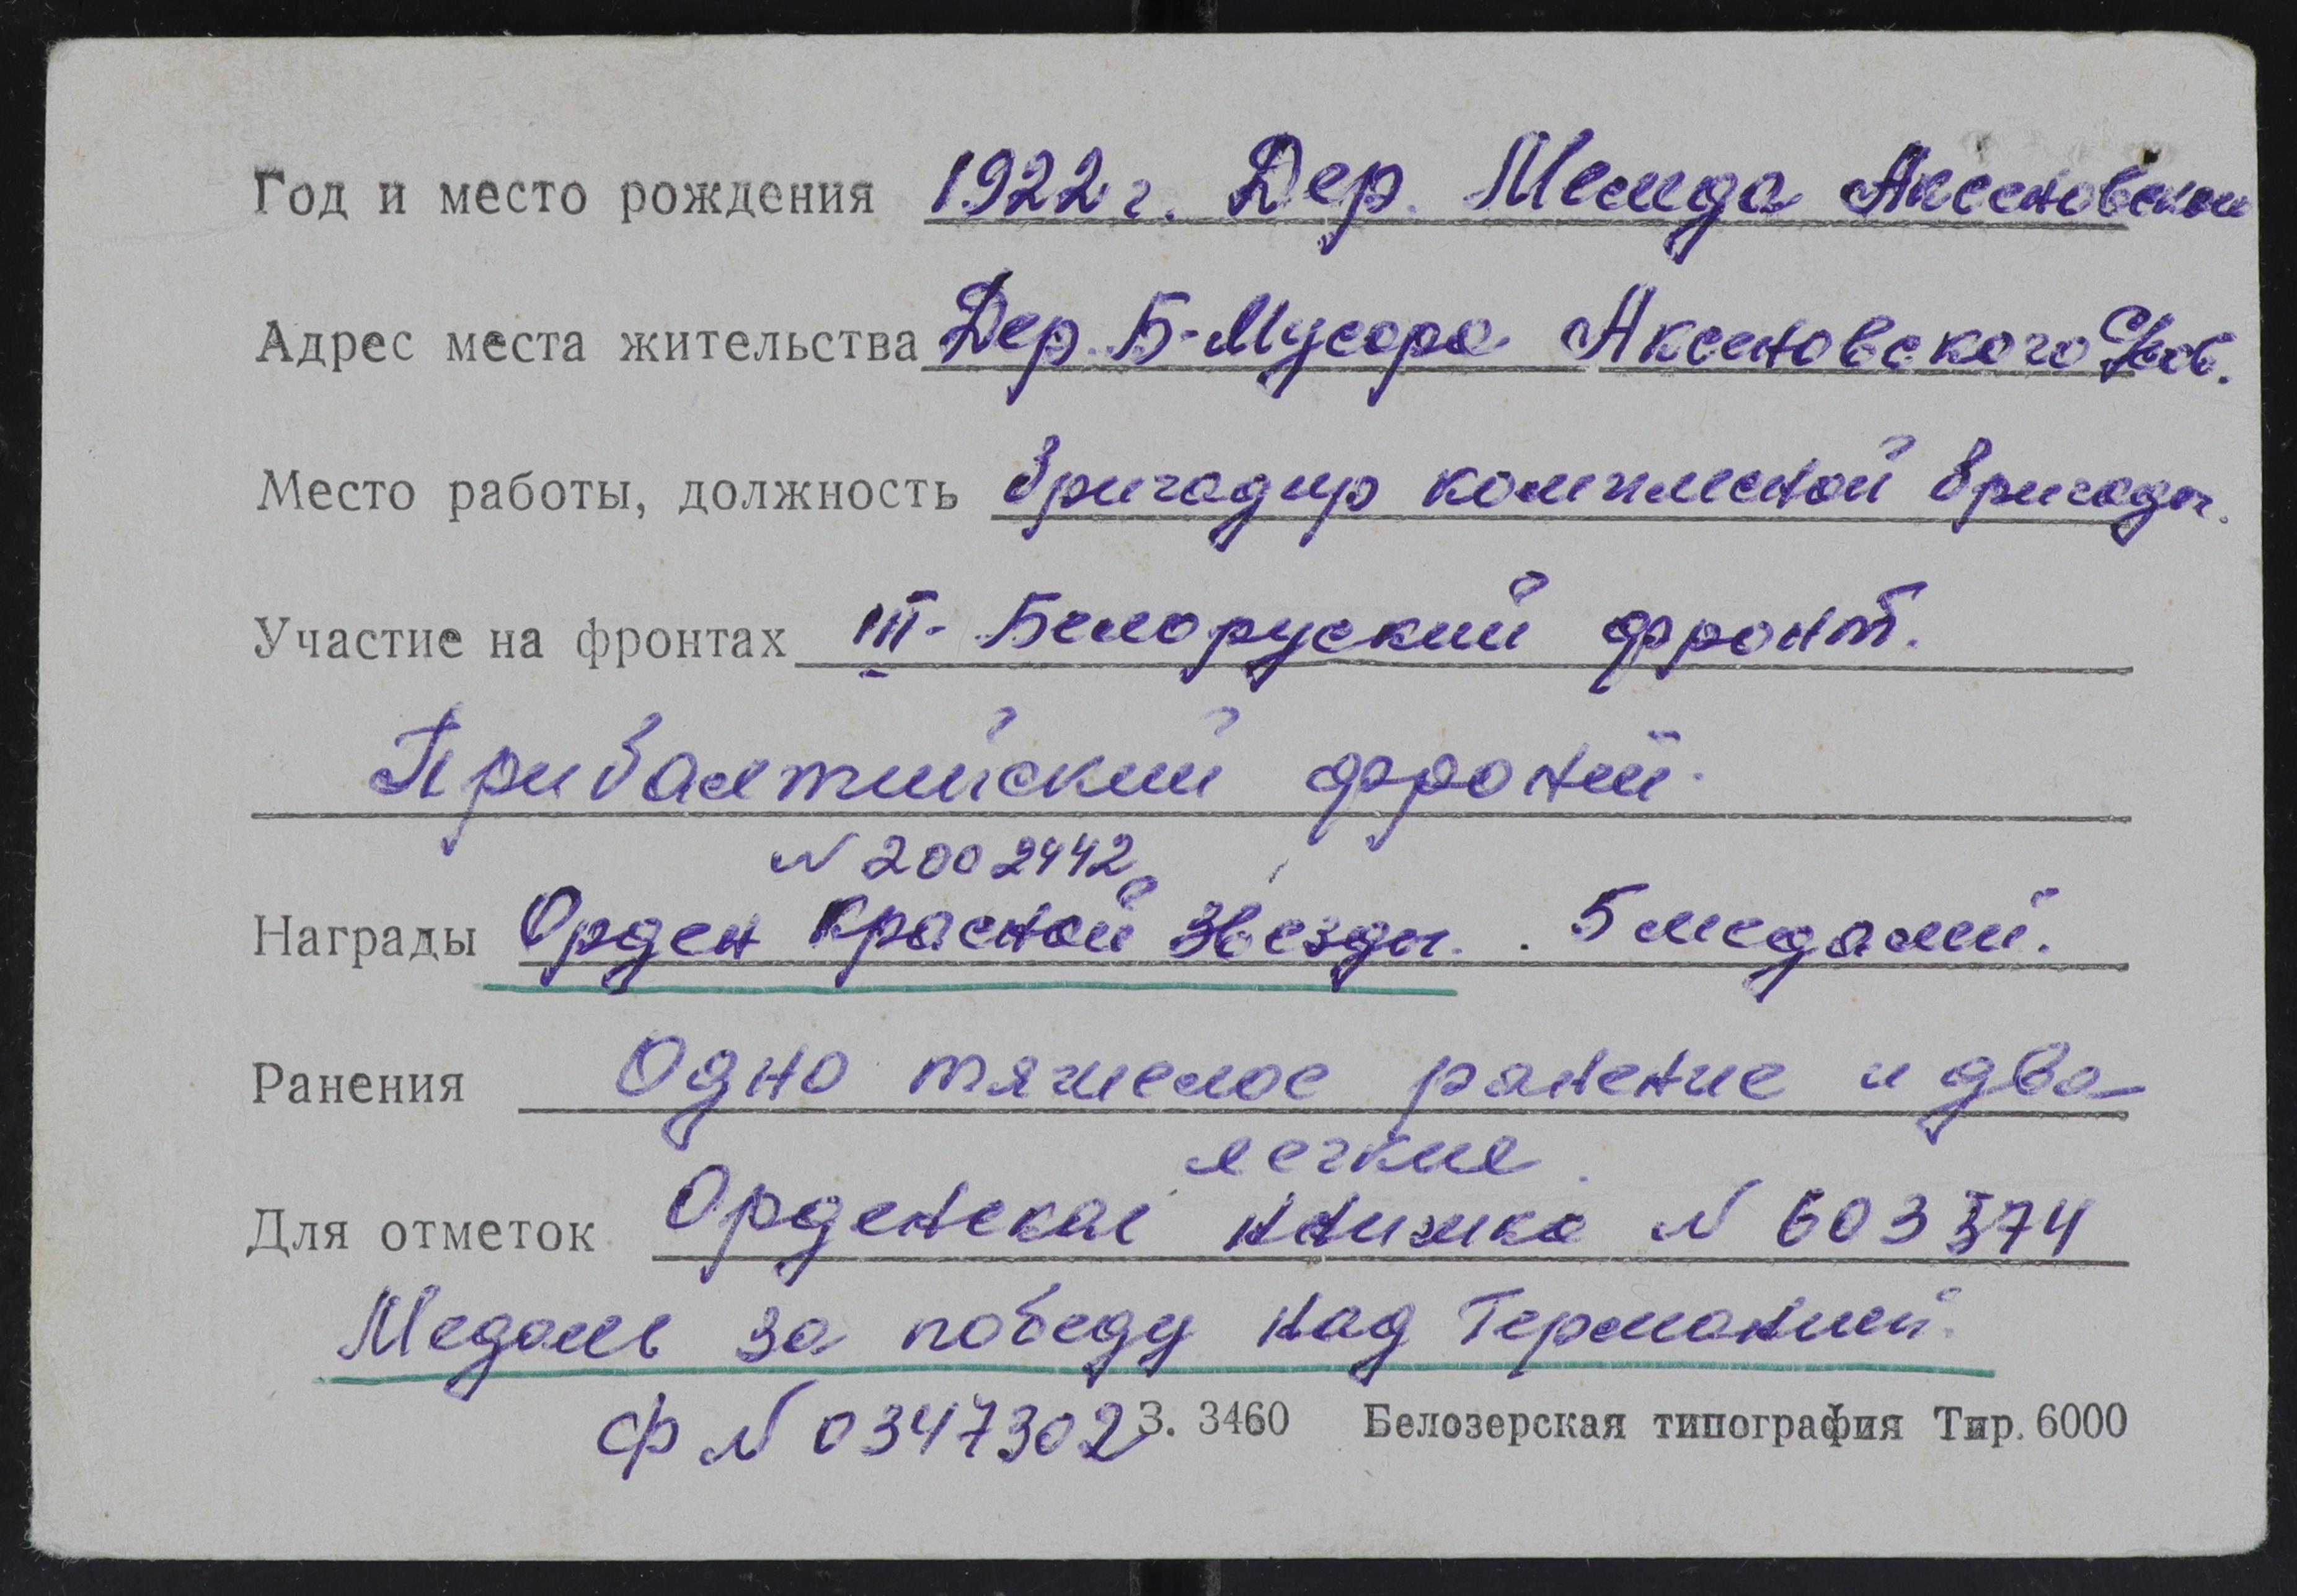 Год и место рождения 1922 г. Дер. Менда Аксеновском
Адрес места жительства Дер. Б-Мусора Аксеновского С/сов.
Место работы, должность бригадир комплексной бригады.
Участие на фронтах III- Белоруский фронт.
Прибалтийский фронт.
N 2002442
Награды Орден Красной Звезды. 5 медалей.
Ранения Одно тяжелое ранение и два
легкие.
Для отметок Орденская книжка N 603374
Медаль за победу над Германией.
Ф N 0347302 З. 3460 Белозерская типография Тир. 6000